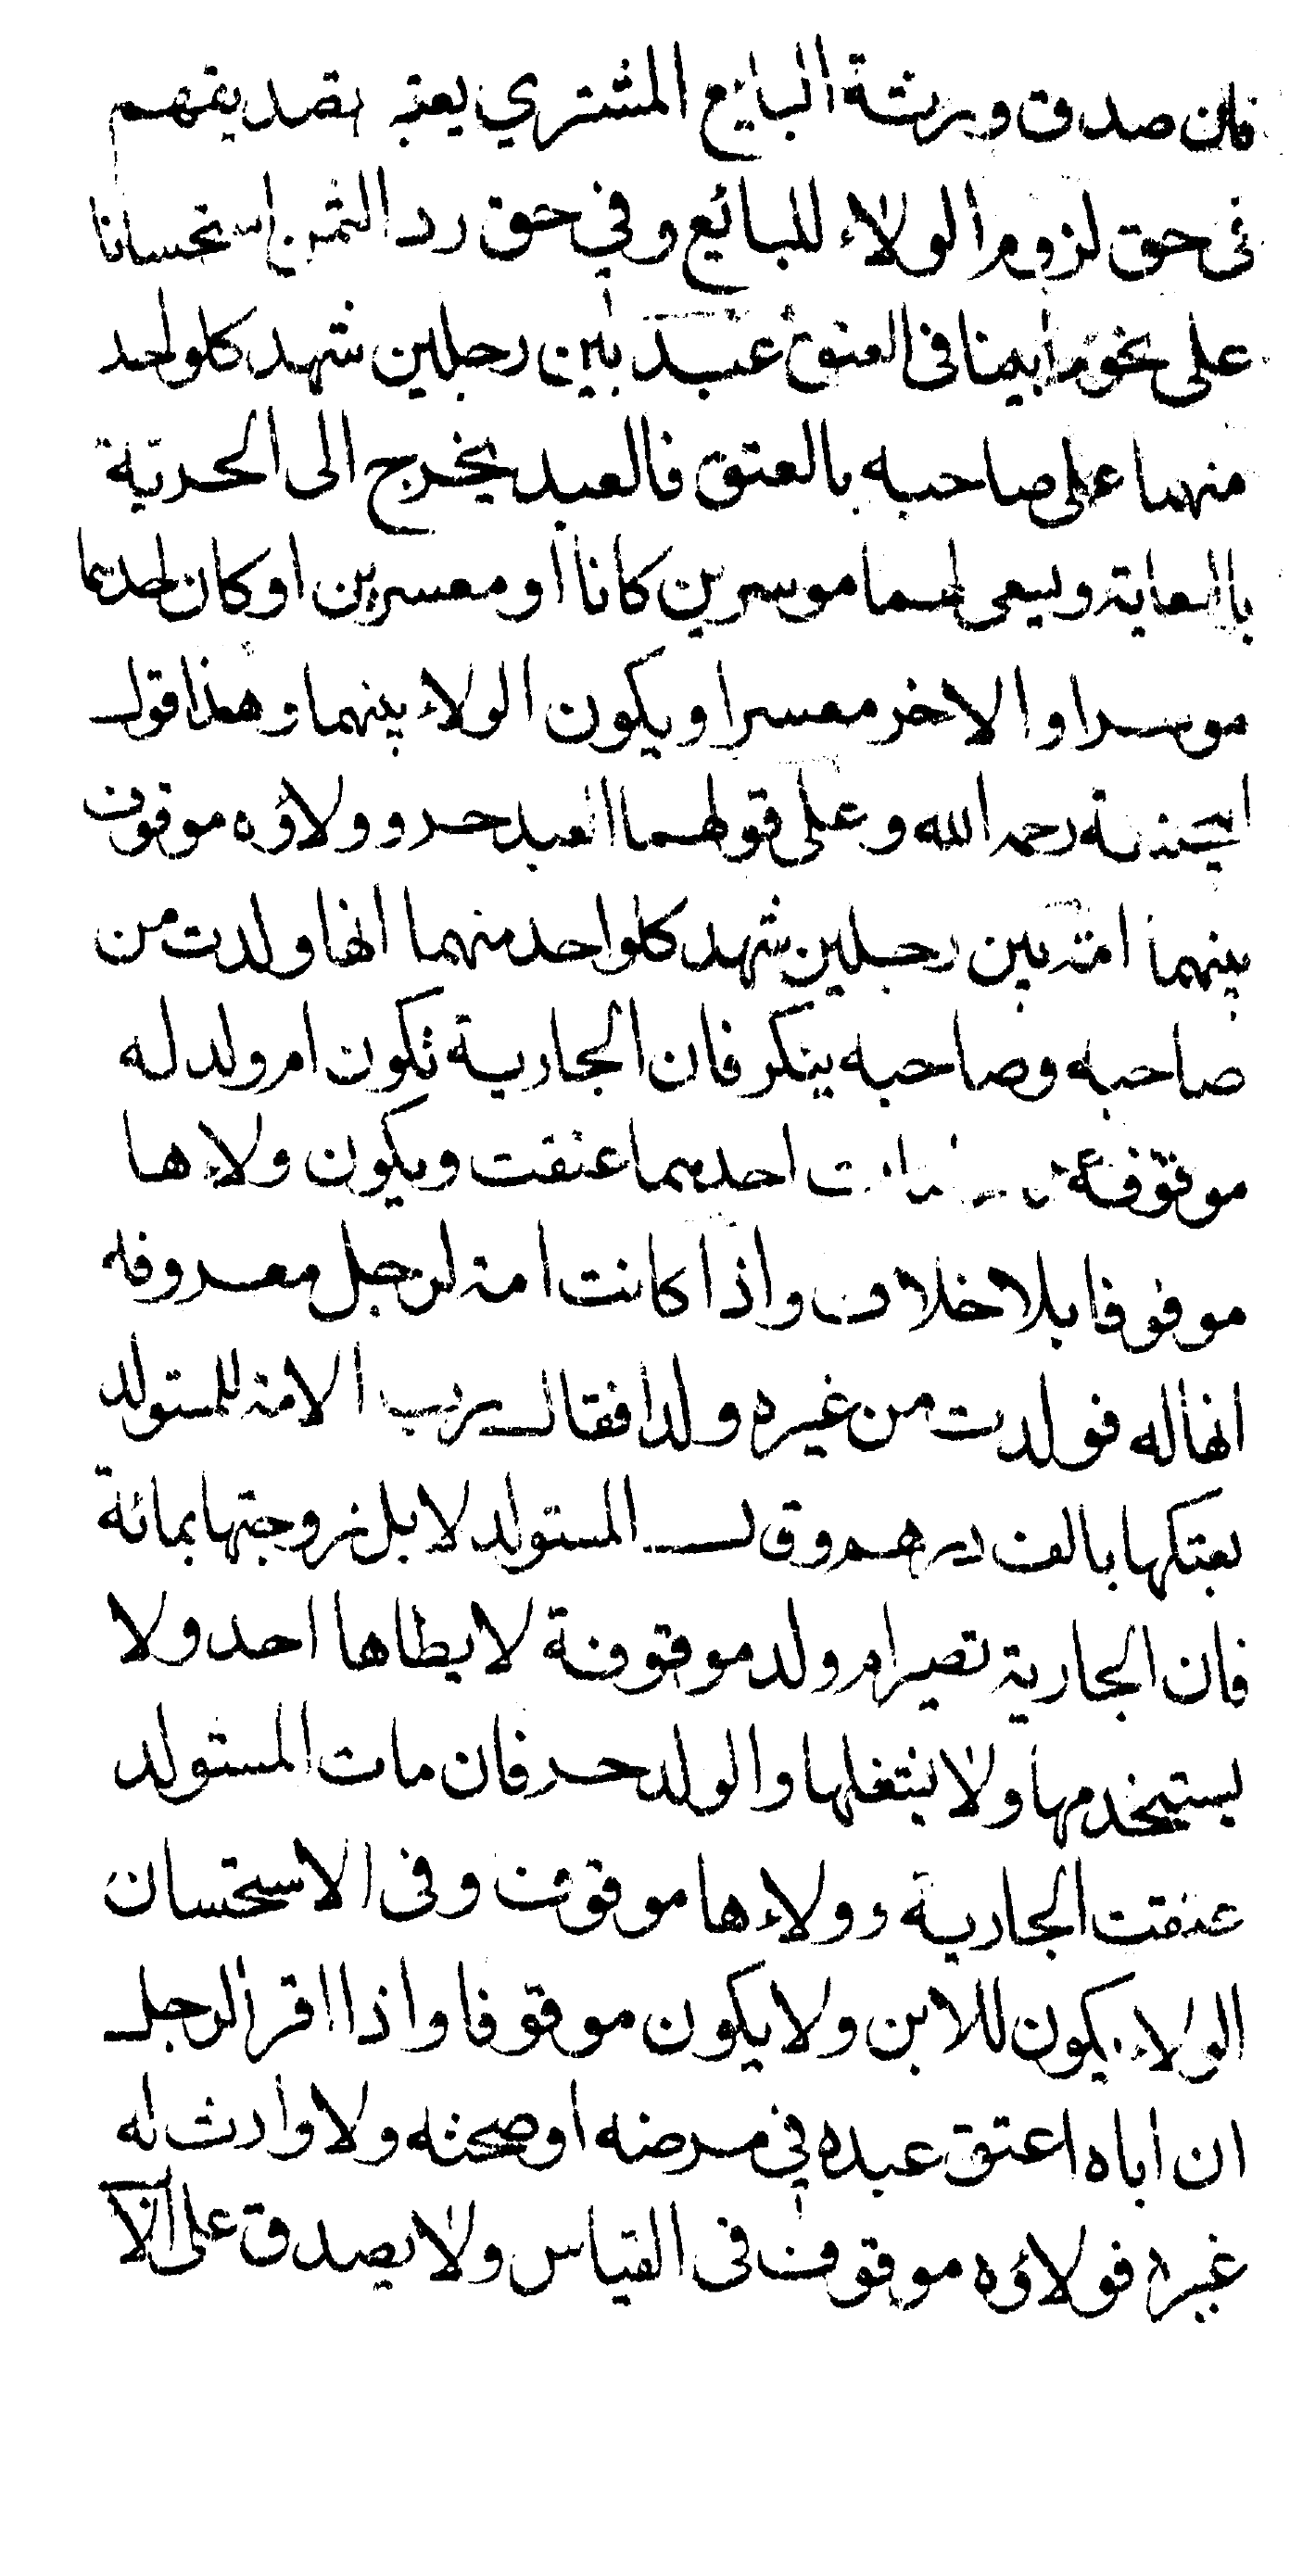 فان صدق ورثة البايع المشتري يعتبر تصديقهم
في حق لزوم الولاء للبائع وفي حق رد الثمن استحسانا
على نحو ما بينا فى العتق عبد بين رجلين شهد كلواحد
منهما على صاحبه بالعتق فالعبد يخرج الى الحرية
بالسعاية ويسعى لهما موسرين كانا او معسرين او كان احدهما
موسرا والاخر معسرا ويكون الولاء بينهما وهذا قول
ابيحنيفة رحمه الله وعلى قولهما العبد حر وولاؤه موقوف
بينهما امة بين رجلين شهد كلواحد منهما انها ولدت من
صاحبه وصاحبه ينكر فان الجارية تكون ام ولد له
موقوفة احدهما عتقت ويكون ولاءها
موقوفا بلا خلاف واذا كانت امة لرجل معروفه
انها له فولدت من غيره ولدا فقال رب الامة للمستولد
بعتكها بالف درهم وقال المستولد لا بل زوجتها بمائة
فان الجارية تصير ام ولد موقوفة لا يطاها احد ولا
يستخدمها ولا يستغلها والولد حر فان مات المستولد
عتقت الجارية وولاءها موقوف وفى الاستحسان
الولاء يكون للابن ولا يكون موقوفا واذا اقر الرجل
ان اباه اعتق عبده في مرضه او صحته ولا وارث له
غيره فولاؤه موقوف فى القياس ولا يصدق على الا